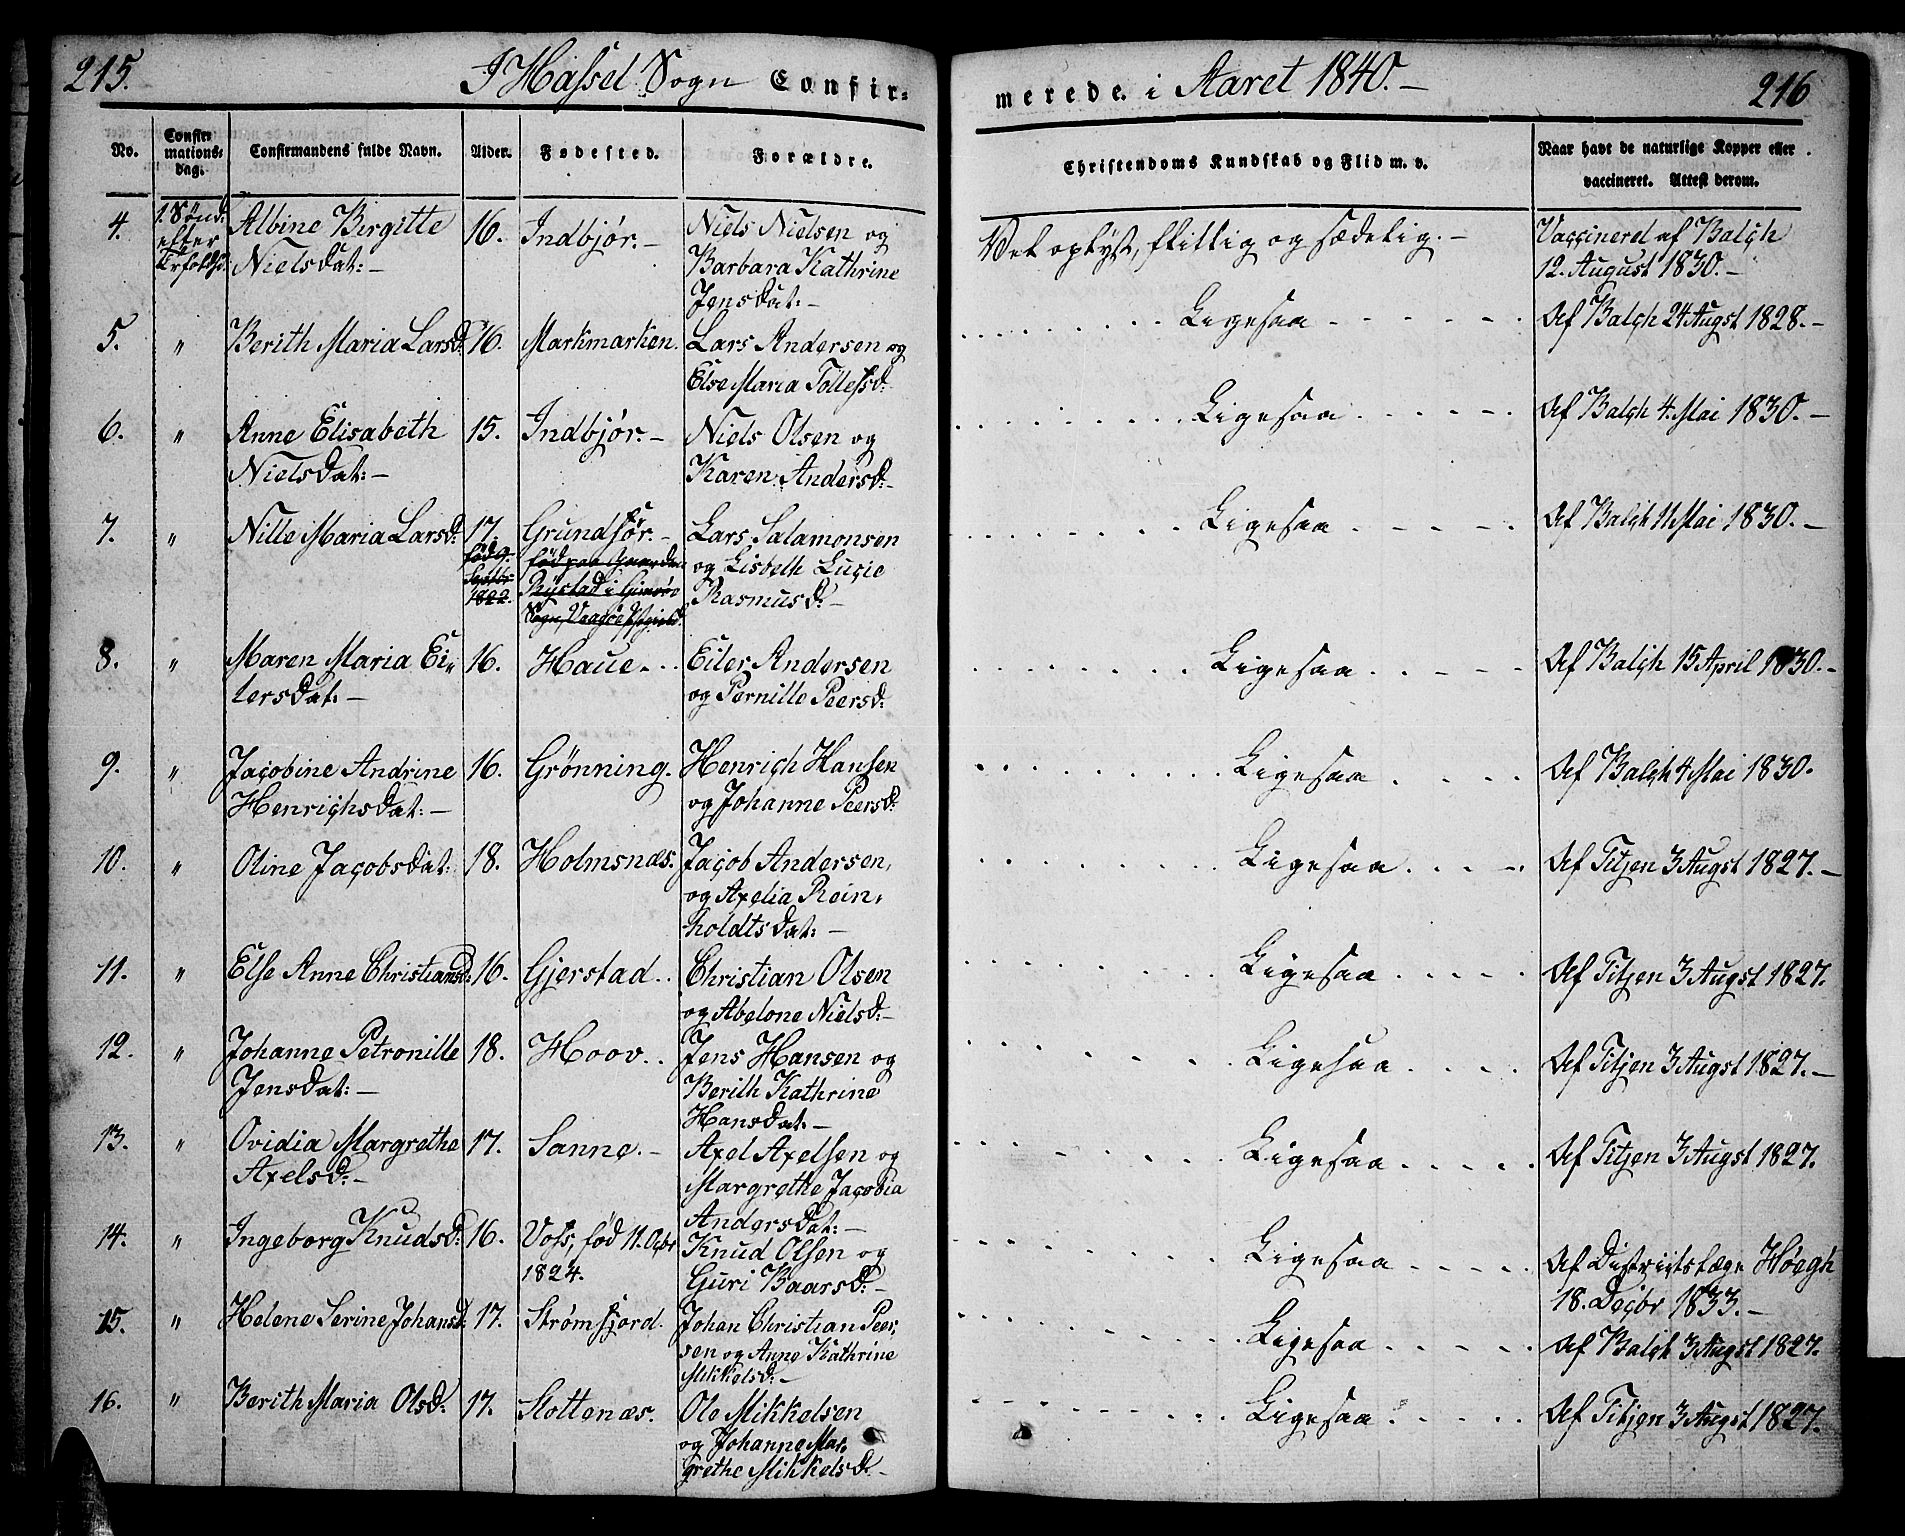 215.
I Hassel Sogn Confir-
merede i Aaret 1840.-
216
No.
Confir
mations-
dag.
Confirmandens fulde Navn.
Alder.
Fødested.
Forældre.
Christendoms Kundskab og Flid m. v.
Naar havt de naturlige Kopper eller
vaccineret. Attest derom.
4.
1. Sønd:
efter
Albine Birgitte
Nielsdat:-
16.
Indbjør.-
Niels Nielsen og
Barbara Kathrine
Jensdat:-
Vel oplyst, flittig og sædelig.-
Vaccineret af Balch
12. August 1830.-
5.
"
Berith Maria Larsd:
16.
Markmarken.
Lars Andersen og
Else Maria Tollefsd:
Ligesaa
Af Balch 24 Augst 1828.-
6.
"
Anne Elisabeth
Nielsdat:-
15.
Indbjør.-
Niels Olsen og
Karen Andersd:-
Ligesaa
Af Balch 4. Mai 1830.-
7.
"
Nille Maria Larsd:
17.
fød 9.
Septbr.
1822.
Grundfør.-
fød paa Gaarden
Rystad i Gimsø
Sogn,
Lars Salamonsen
og Lisbeth Lucie
Rasmusd:-
Ligesaa
Af Balch 11 Mai 1830.-
8.
"
Maren Maria Ei-
lersdat:-
16.
Haue
Eiler Andersen
og Pernille Peersd:
Ligesaa
Af Balch 15 April 1830.-
9.
"
Jacobine Andrine
Henrichsdat:-
16.
Grønning.
Henrich Hansen
og Johanne Peersd:
Ligesaa
Af Balch 4 Mai 1830.
10.
"
Oline Jacobsdat:
18.
Holmsnæs.
Jacob Andersen,
og Axelia Rein-
holdtsdat:-
Ligesaa
Af Titjen 3 Augst 1827.-
11.
"
Else Anne Christiansd:
16.
Gjerstad
Christian Olsen
og Abelone Nielsd:-
Ligesaa
Af Titjen 3 Augst 1827.
12.
"
Johanne Petronille
Jensdat:-
18.
Hoov
Jens Hansen og
Berith Kathrine
Hansdat.-
Ligesaa
Af Titjen 3 Augst 1827.-
13.
"
Ovidia Margrethe
Axelsd:-
17.
Sanne.-
Axel Axelsen og
Margrethe Jacobia
Andersdat:-
Ligesaa
Af Titjen 3 Augst 1827.
14.
"
Ingeborg Knudsd:
16.
Voss, fød 11. Ocbr
1824.
Knud Olsen og
Guri Baarsd:-
Ligesaa
Af Districtslæge Høegh
18. Decbr 1833.-
15.
"
Helene Serine Johansd.
17.
Strømfjord.
Johan Christian Peer-
sen og Anne Kathrine
Mikkelsd:-
Ligesaa
Af Balch 3 Augst 1827.
16.
"
Berith Maria Olsd:
17.
Slottenæs.
Ole Mikkelsen
og Johanne Mar-
grethe Mikkelsd:-
Ligesaa
Af Titjen 3 Augst 1827.